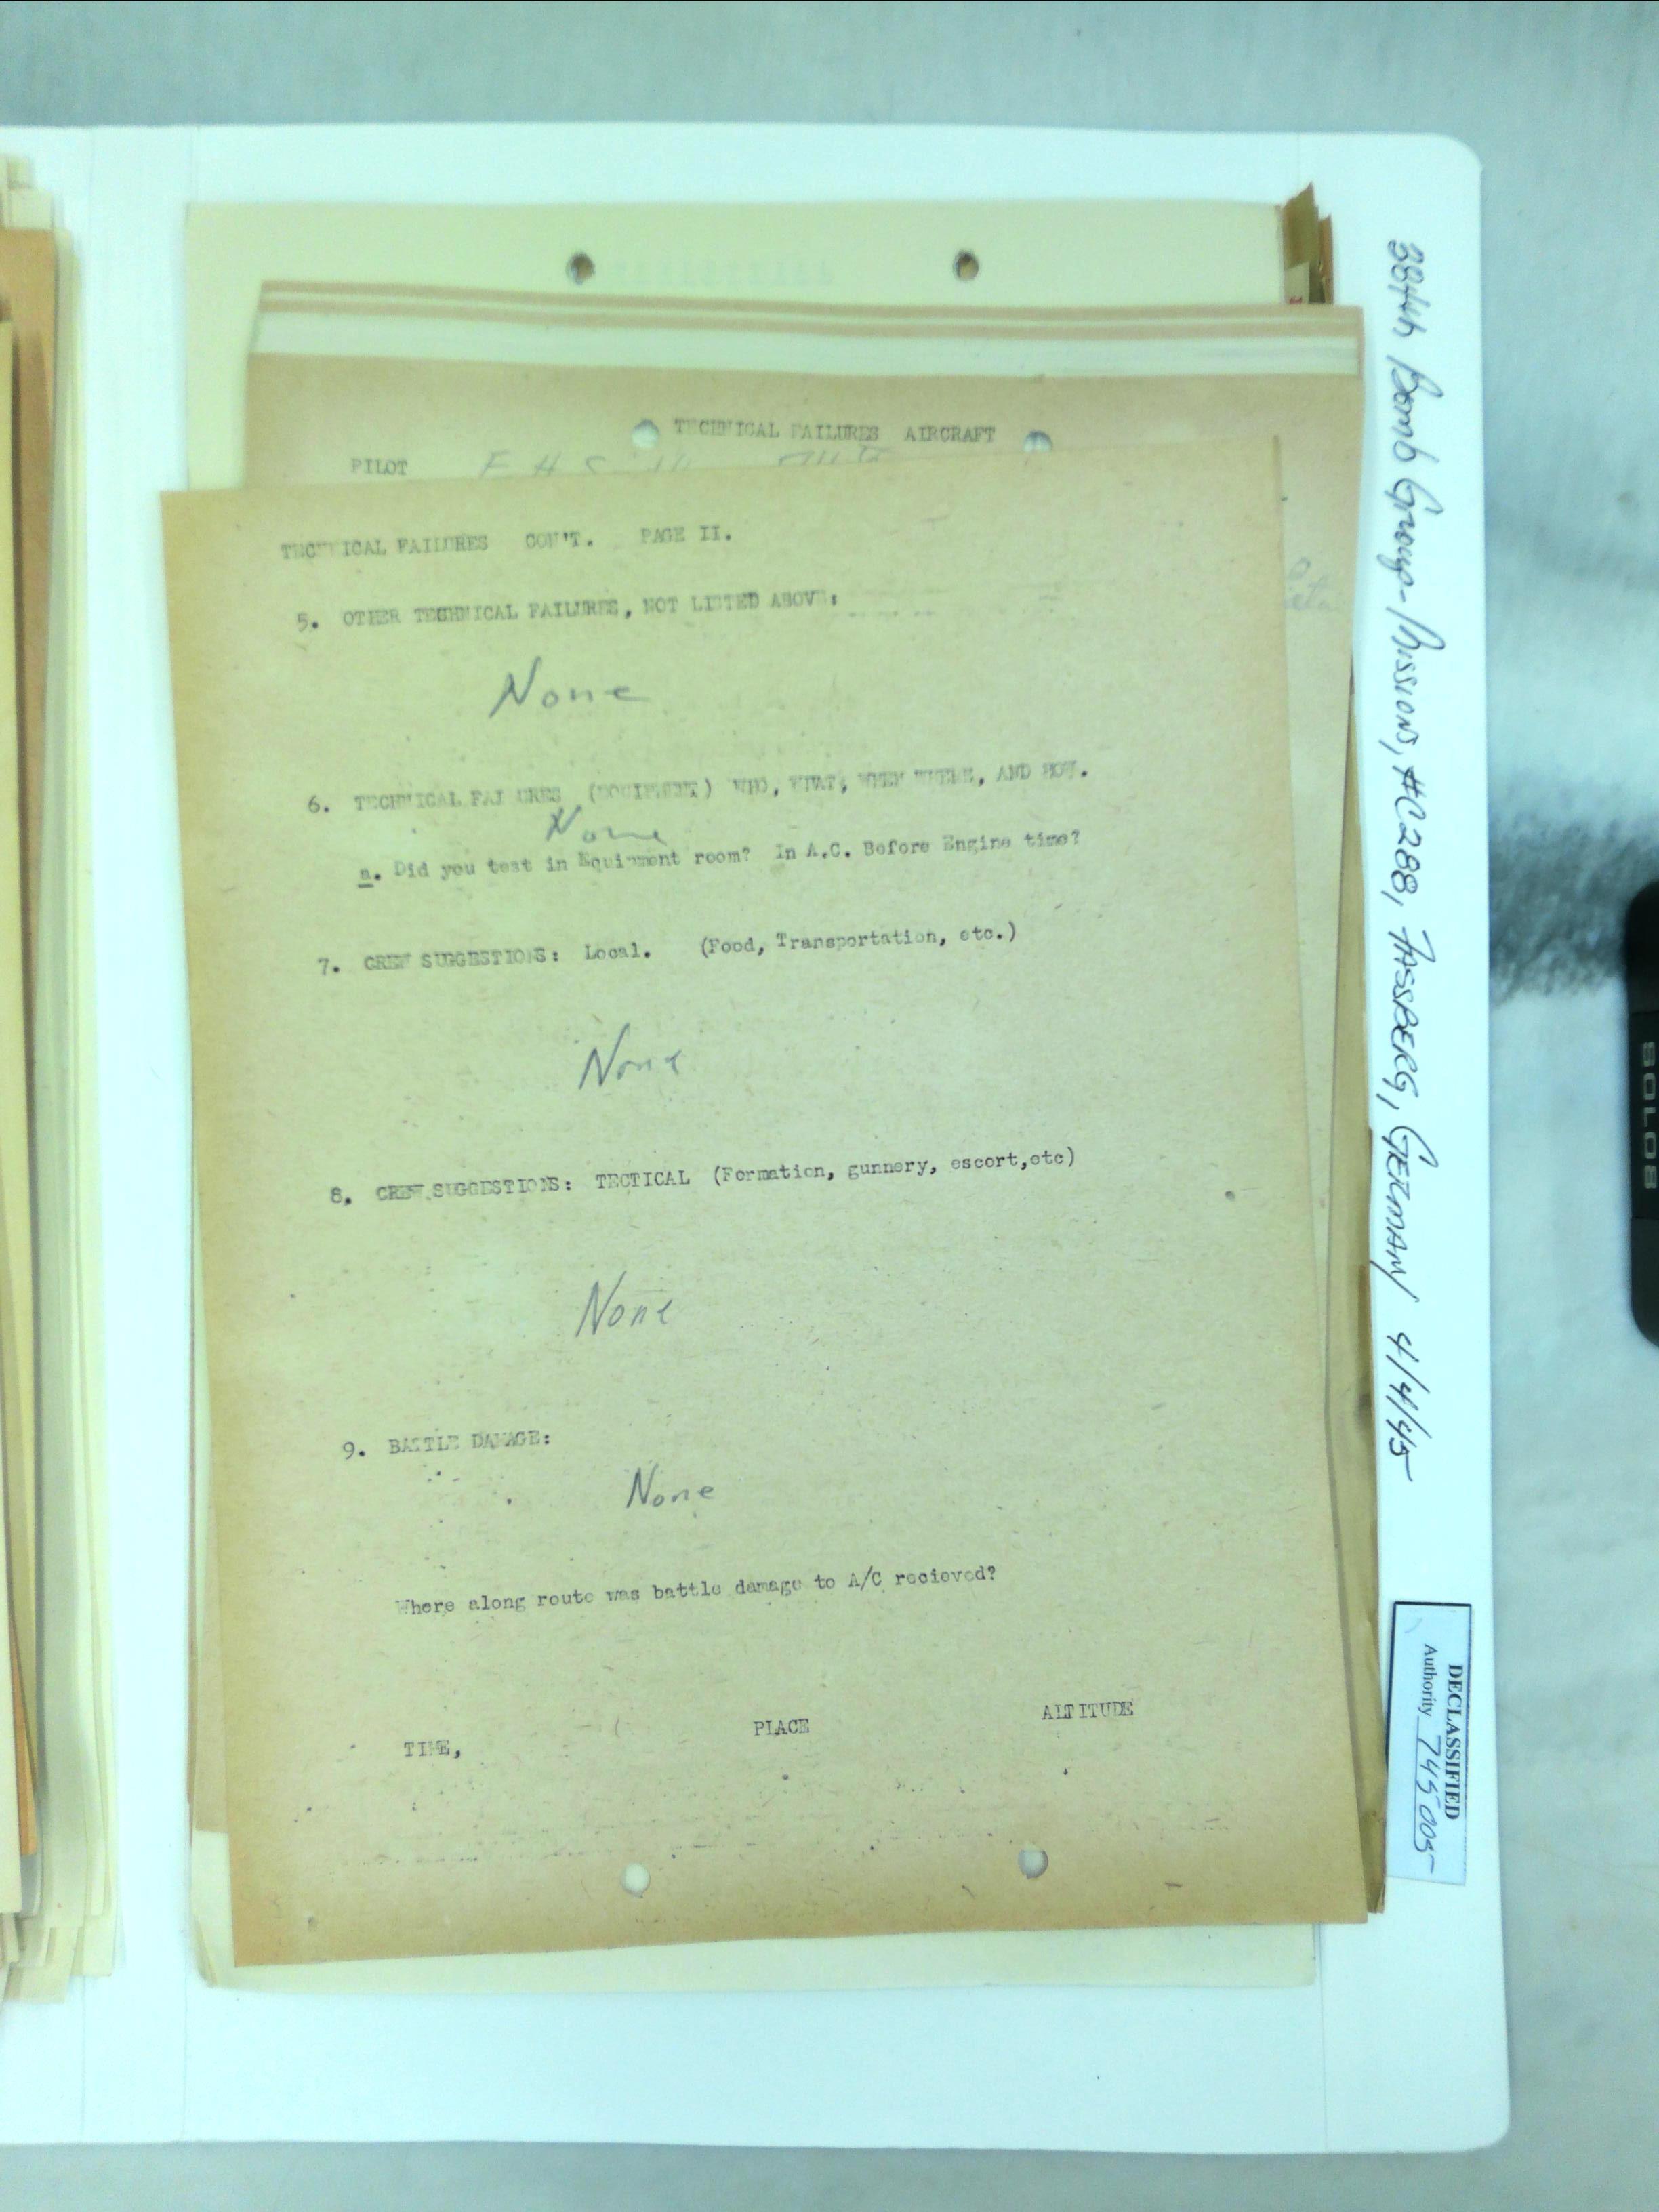 TECHNICAL FAILURES AIRCRAFT
PILOT
TECHNICAL FAILURES CON'T. PAGE II.
5. OTHER TECHNICAL FAILURES, NOT LISTED ABOVE:
None
6. TECHNICAL FAILURES (EQUIPMENT) WHO, WHAT, WHEN WHERE, AND HOW.
None
a. Did you test in Equipment room? In A.C. Before Engine time?
7. CREW SUGGESTIONS: Local. (Food, Transportation, etc.)
None
8. CREW SUGGESTIONS: TECTICAL (Formation, gunnery, escort,etc)
None
9. BATTLE DAMAGE:
None
Where along route was battle damage to A/C recieved?
TIME, PLACE ALTITUDE
384th Bomb Group-Missions, #C288, FASSBERG, GERMANY 4/4/45
DECLASSIFIED
Authority 745005